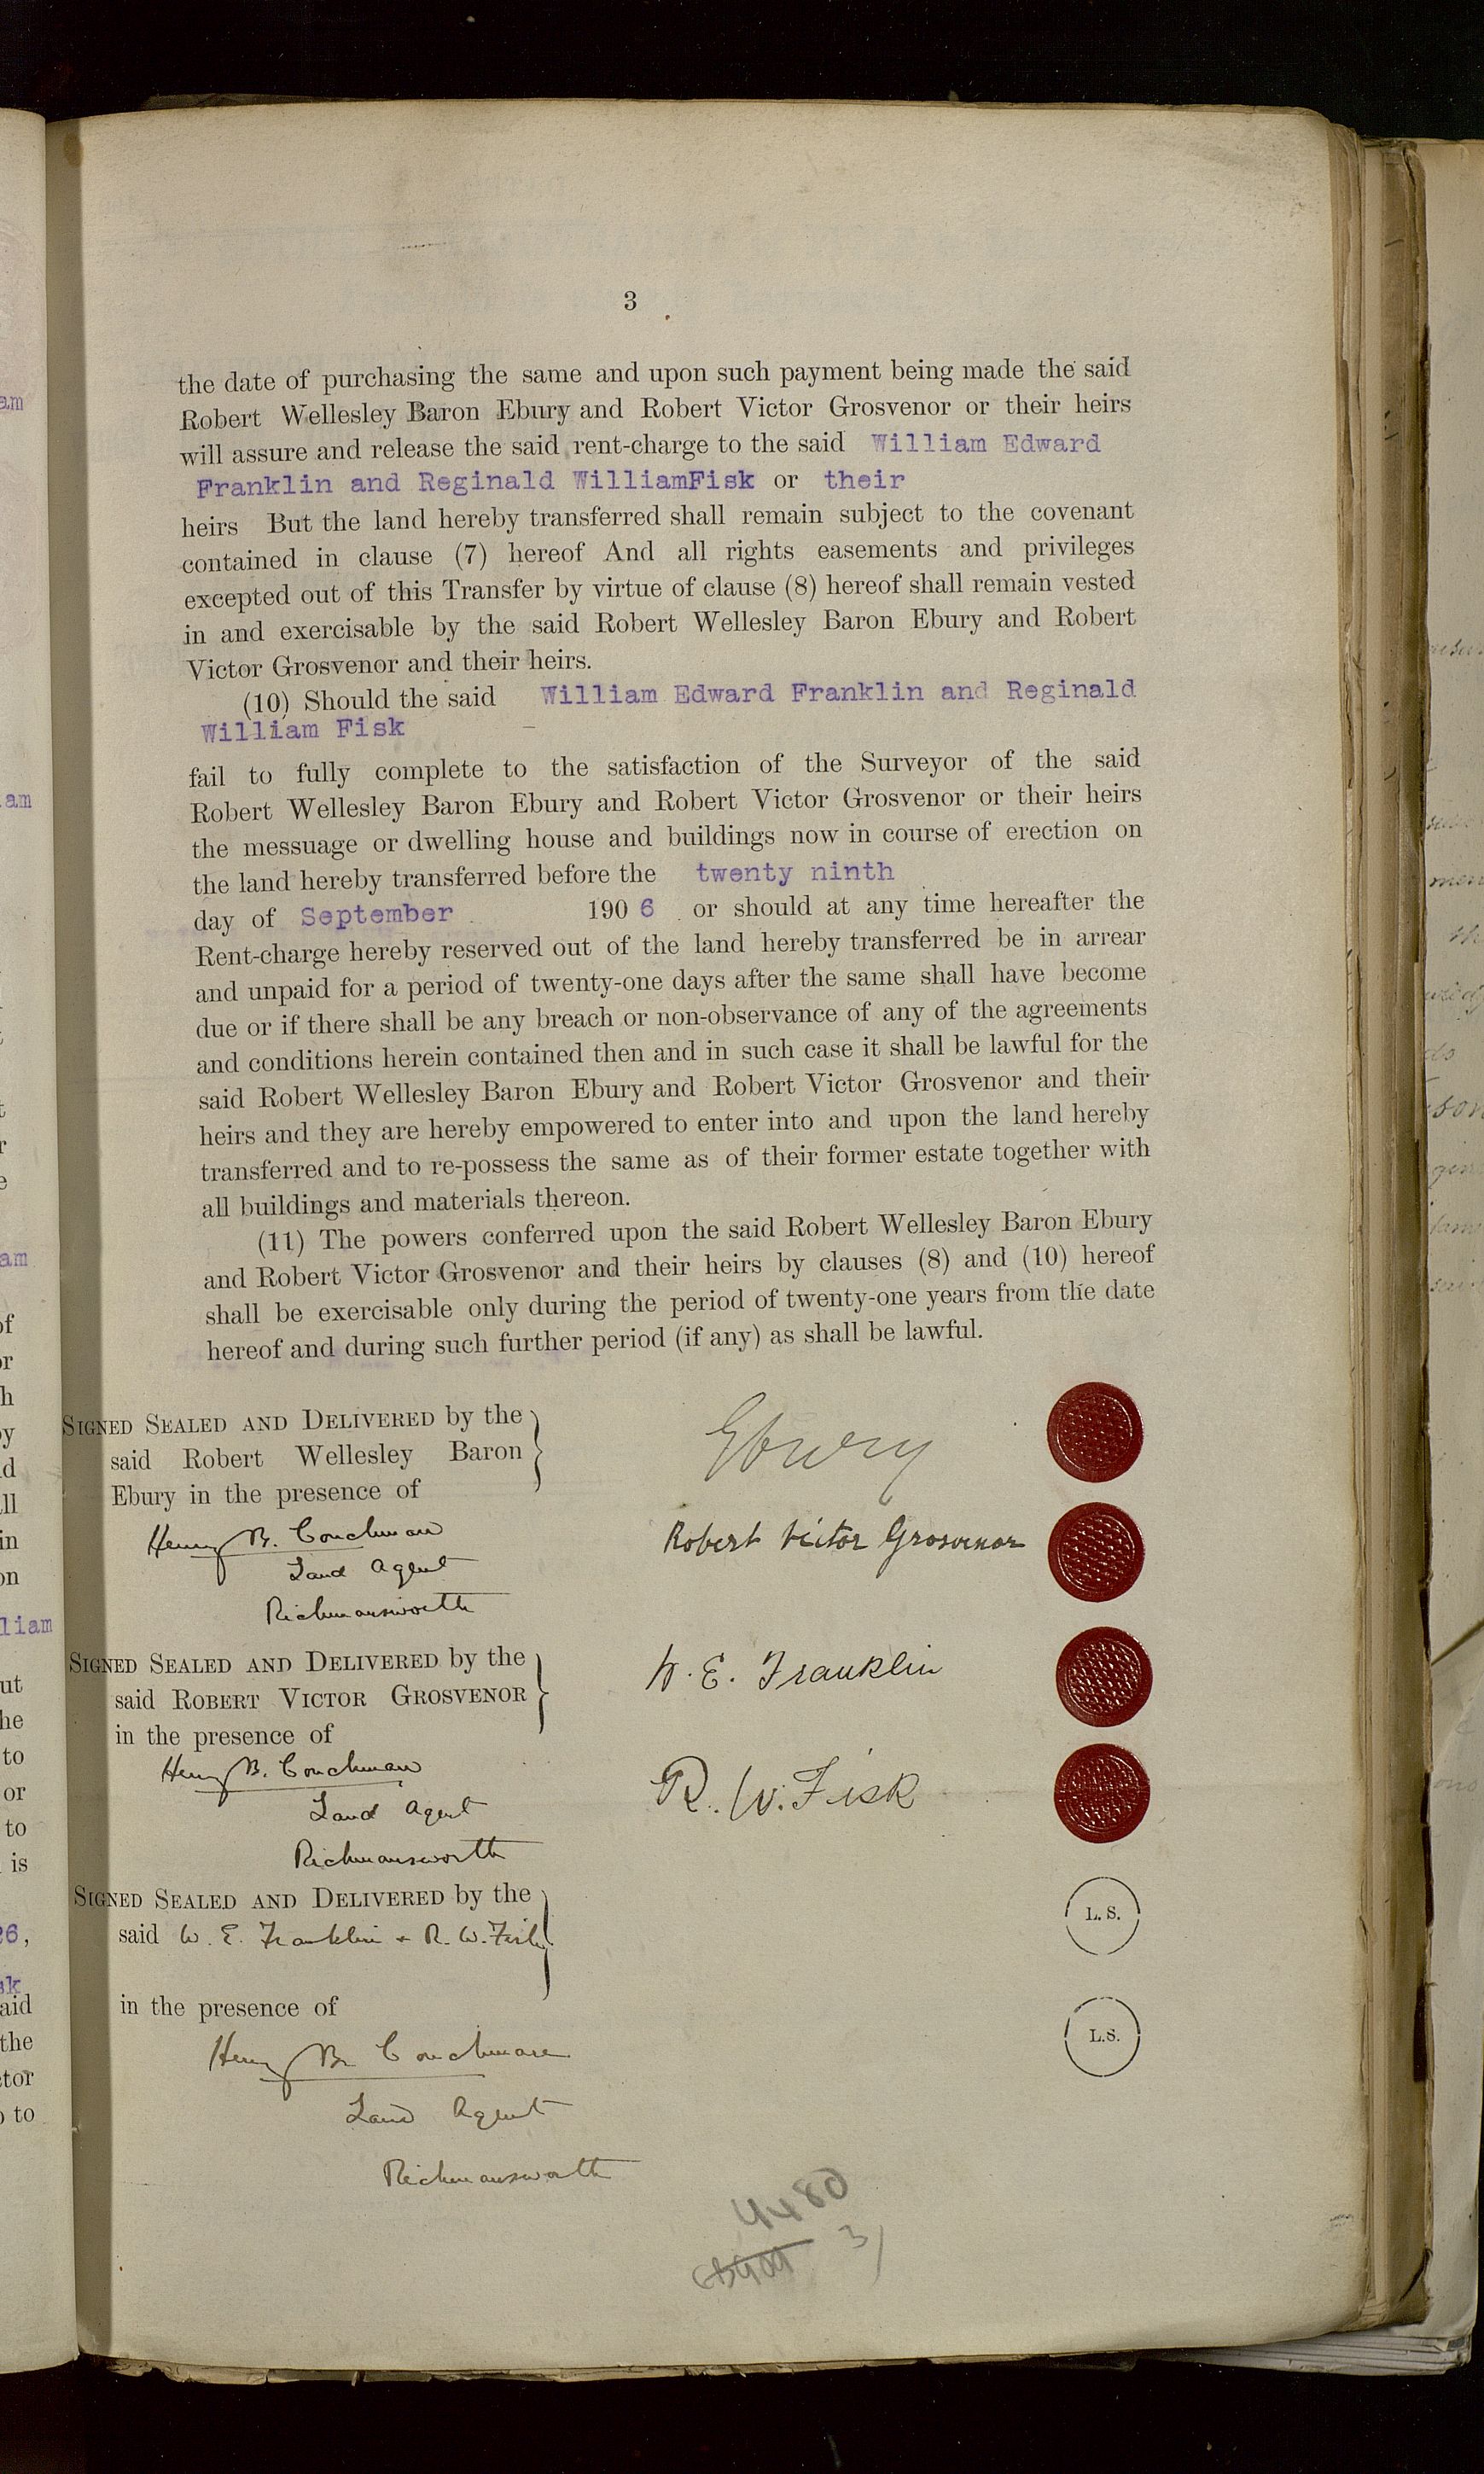 3
the date of purchasing the same and upon such payment being made the said
Robert Wellesley Baron Ebury and Robert Victor Grosvenor or their heirs
will assure and release the said rent-charge to the said William Edward
Franklin and Reginald WilliamFisk or their
heirs But the land hereby transferred shall remain subject to the covenant
contained in clause (7) hereof And all rights easements and privileges
excepted out of this Transfer by virtue of clause (8) hereof shall remain vested
in and exercisable by the said Robert Wellesley Baron Ebury and Robert
Victor Grosvenor and their heirs.
(10) Should the said William Edward Franklin and Reginald
William Fisk
fail to fully complete to the satisfaction of the Surveyor of the said
Robert Wellesley Baron Ebury and Robert Victor Grosvenor or their heirs
the messuage or dwelling house and buildings now in course of erection on
the land hereby transferred before the twenty ninth
day of September 190 6 or should at any time hereafter the
Rent-charge hereby reserved out of the land hereby transferred be in arrear
and unpaid for a period of twenty-one days after the same shall have become
due or if there shall be any breach or non-observance of any of the agreements
and conditions herein contained then and in such case it shall be lawful for the
said Robert Wellesley Baron Ebury and Robert Victor Grosvenor and their
heirs and they are hereby empowered to enter into and upon the land hereby
transferred and to re-possess the same as of their former estate together with
all buildings and materials thereon.
(11) The powers conferred upon the said Robert Wellesley Baron Ebury
and Robert Victor Grosvenor and their heirs by clauses (8) and (10) hereof
shall be exercisable only during the period of twenty-one years from the date
hereof and during such further period (if any) as shall be lawful.
SIGNED SEALED AND DELIVERED by the
said Robert Wellesley Baron
Ebury in the presence of
Ebury
Henry B. Couchman
Land Agent
Rickmansworth
Robert Victor Grosvenor
SIGNED SEALED AND DELIVERED by the
said ROBERT VICTOR GROSVENOR
in the presence of
W. E. Franklin
Henry B. Couchman
Land Agent
Rickmansworth
R. W. Fisk
SIGNED SEALED AND DELIVERED by the
said W. E. Franklin + R. W. Fisk
L. S.
in the presence of
L.S.
Henry B. Couchman
Land Agent
Rickmansworth
4480
3/